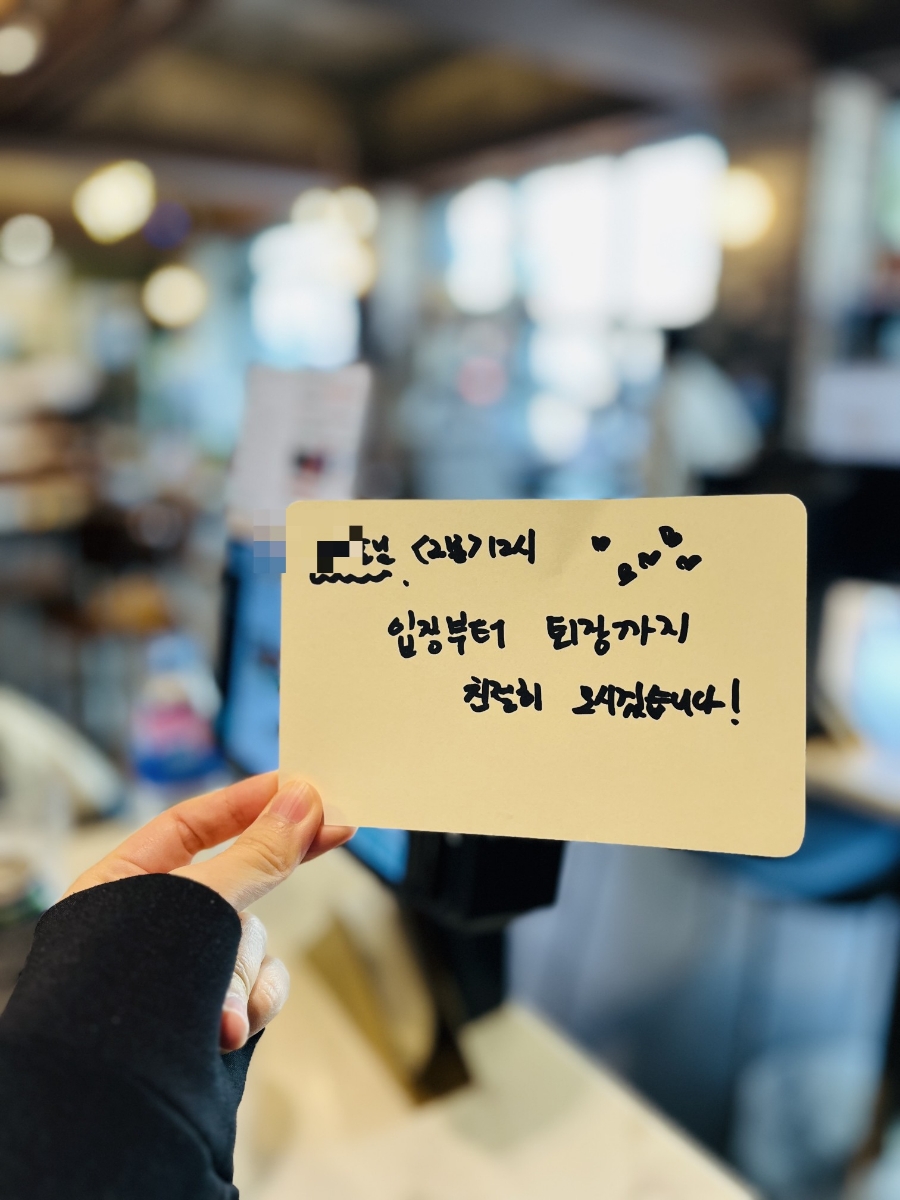 님
입장부터 퇴장까지
친절히 모시겠습니다!